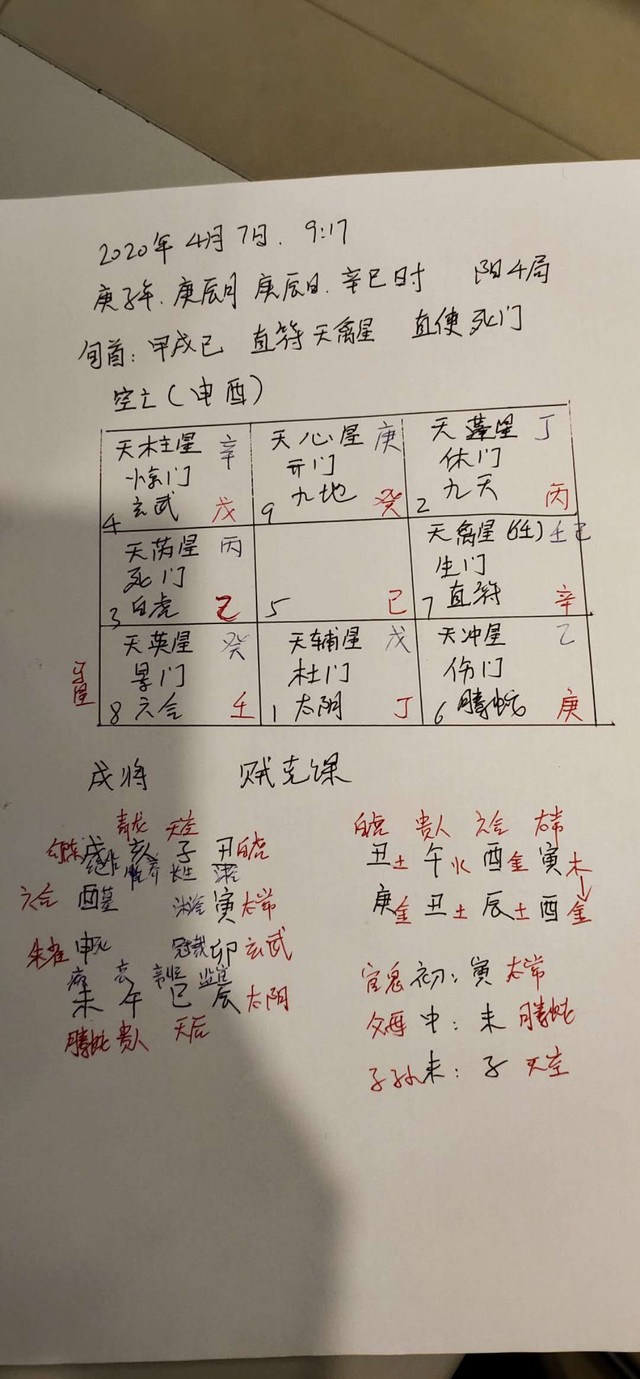 2020年 4月 7日. 9:17
庚子年. 庚辰月 庚辰日. 辛巳时 阳4局
旬首: 甲戌己 直符天禽星 直使死门
空亡(申酉)
天柱星 辛 天心星 庚 天蓬星 丁
惊门 开门 休门
4 玄武 戊 9 九地 癸 2 九天 丙
天芮星 丙 天禽星(任) 壬己
死门 生门
3 白虎 乙 5 己 7 直符 辛
天英星 癸 天辅星 戊 天冲星 乙
景门 杜门 伤门
马星 8 六合 壬 1 太阴 丁 6 腾蛇 庚
戌将 贼克课
青龙 天空
勾陈 戌 亥 子 丑 白虎
养 长生
六合 酉墓 沐浴 寅 太常
朱雀 申死 冠戴 卯 玄武
病 衰
未 午 巳 辰 太阴
腾蛇 贵人 天后
白虎 贵人 六合 太常
丑土 午火 酉金 寅木
庚金 丑土 辰土 酉金
官鬼 初: 寅 太常
父母 中: 未 腾蛇
子孙 末: 子 天空